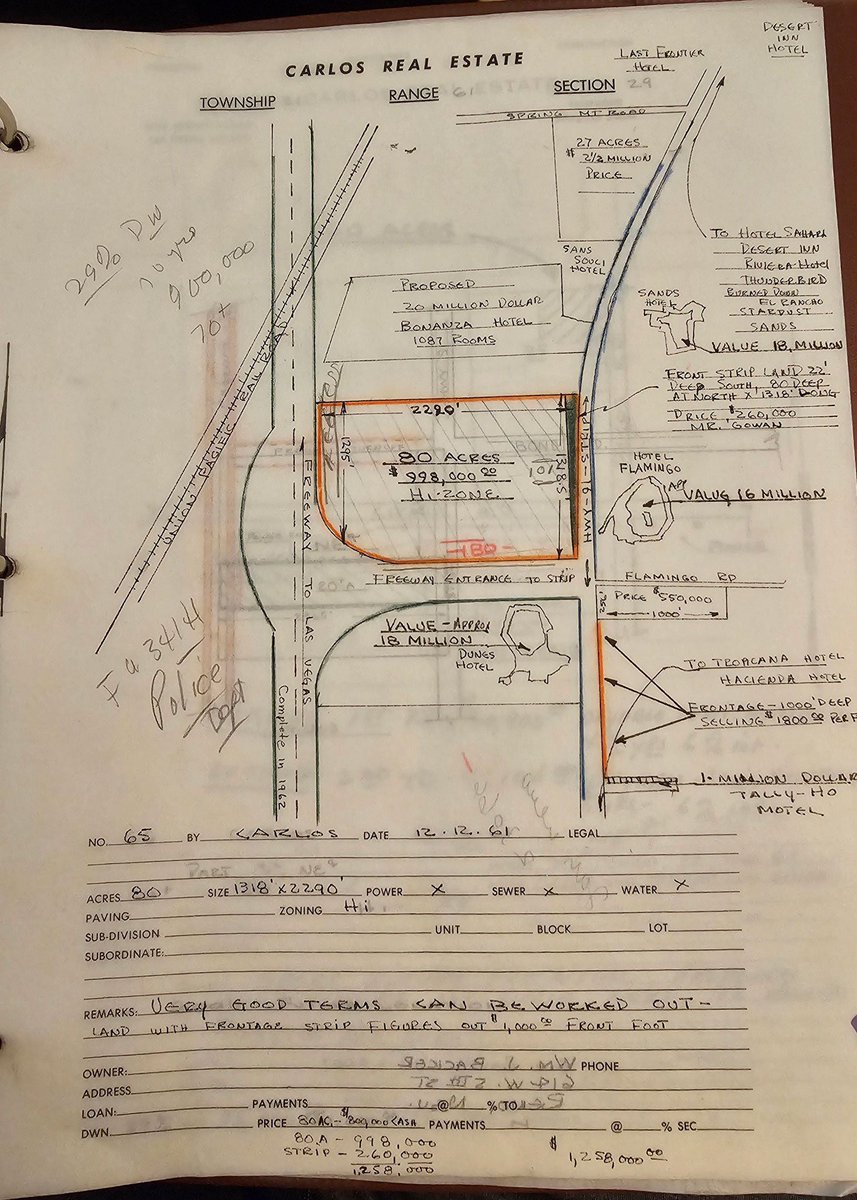 DESERT
INN
HOTEL
LAST FRONTIER
HOTEL
CARLOS REAL ESTATE
TOWNSHIP
RANGE 61
SECTION 29
SPRING MT ROAD
27 ACRES
$ 2 1/2 MILLION
PRICE
29% DW
10 yrs
900,000
70+
SANS
SOUCI
HOTEL
TO HOTEL SAHARA
DESERT INN
RIVIERA-HOTEL
THUNDERBIRD
BURNED DOWN
EL RANCHO
STARDUST
SANDS
SANDS
HOTEL
VALUE 18, MILLION
PROPOSED
20 MILLION DOLLAR
BONANZA HOTEL
1087 ROOMS
UNION PACIFIC RAIL ROAD
FRONT STRIP LAND 22'
DEEP SOUTH, 80 DEEP
AT NORTH X 1318' LONG
PRICE $260,000
MR. GOWAN
2290'
1295'
80 ACRES
$998,000.00
HI-ZONE
1318.5'
HWY-91-STRIP
HOTEL
FLAMINGO
VALUE 16 MILLION
FREEWAY ENTRANCE TO STRIP
FREEWAY TO LAS VEGAS
Complete in 1962
FLAMINGO RD
PRICE $550,000
1000'
VALUE-APPROX
18 MILLION
DUNES
HOTEL
Police
Dept
TO TROPICANA HOTEL
HACIENDA HOTEL
FRONTAGE-1000' DEEP
SELLING $1800.00 PER F
1. MILLION DOLLAR
TALLY-HO
MOTEL
NO. 65 BY CARLOS DATE 12.12.61 LEGAL
ACRES 80 SIZE 1318'X2290' POWER X SEWER X WATER X
PAVING ZONING Hi
SUB-DIVISION UNIT BLOCK LOT
SUBORDINATE:
REMARKS: VERY GOOD TERMS CAN BE WORKED OUT-
LAND WITH FRONTAGE STRIP FIGURES OUT $1,000.00 FRONT FOOT
OWNER: PHONE
ADDRESS
LOAN: PAYMENTS @ % TO
DWN PRICE 80 AC.-$800,000 CASH PAYMENTS @ % SEC
80.A - 998,000
STRIP - 260,000
1,258,000
$ 1,258,000.00